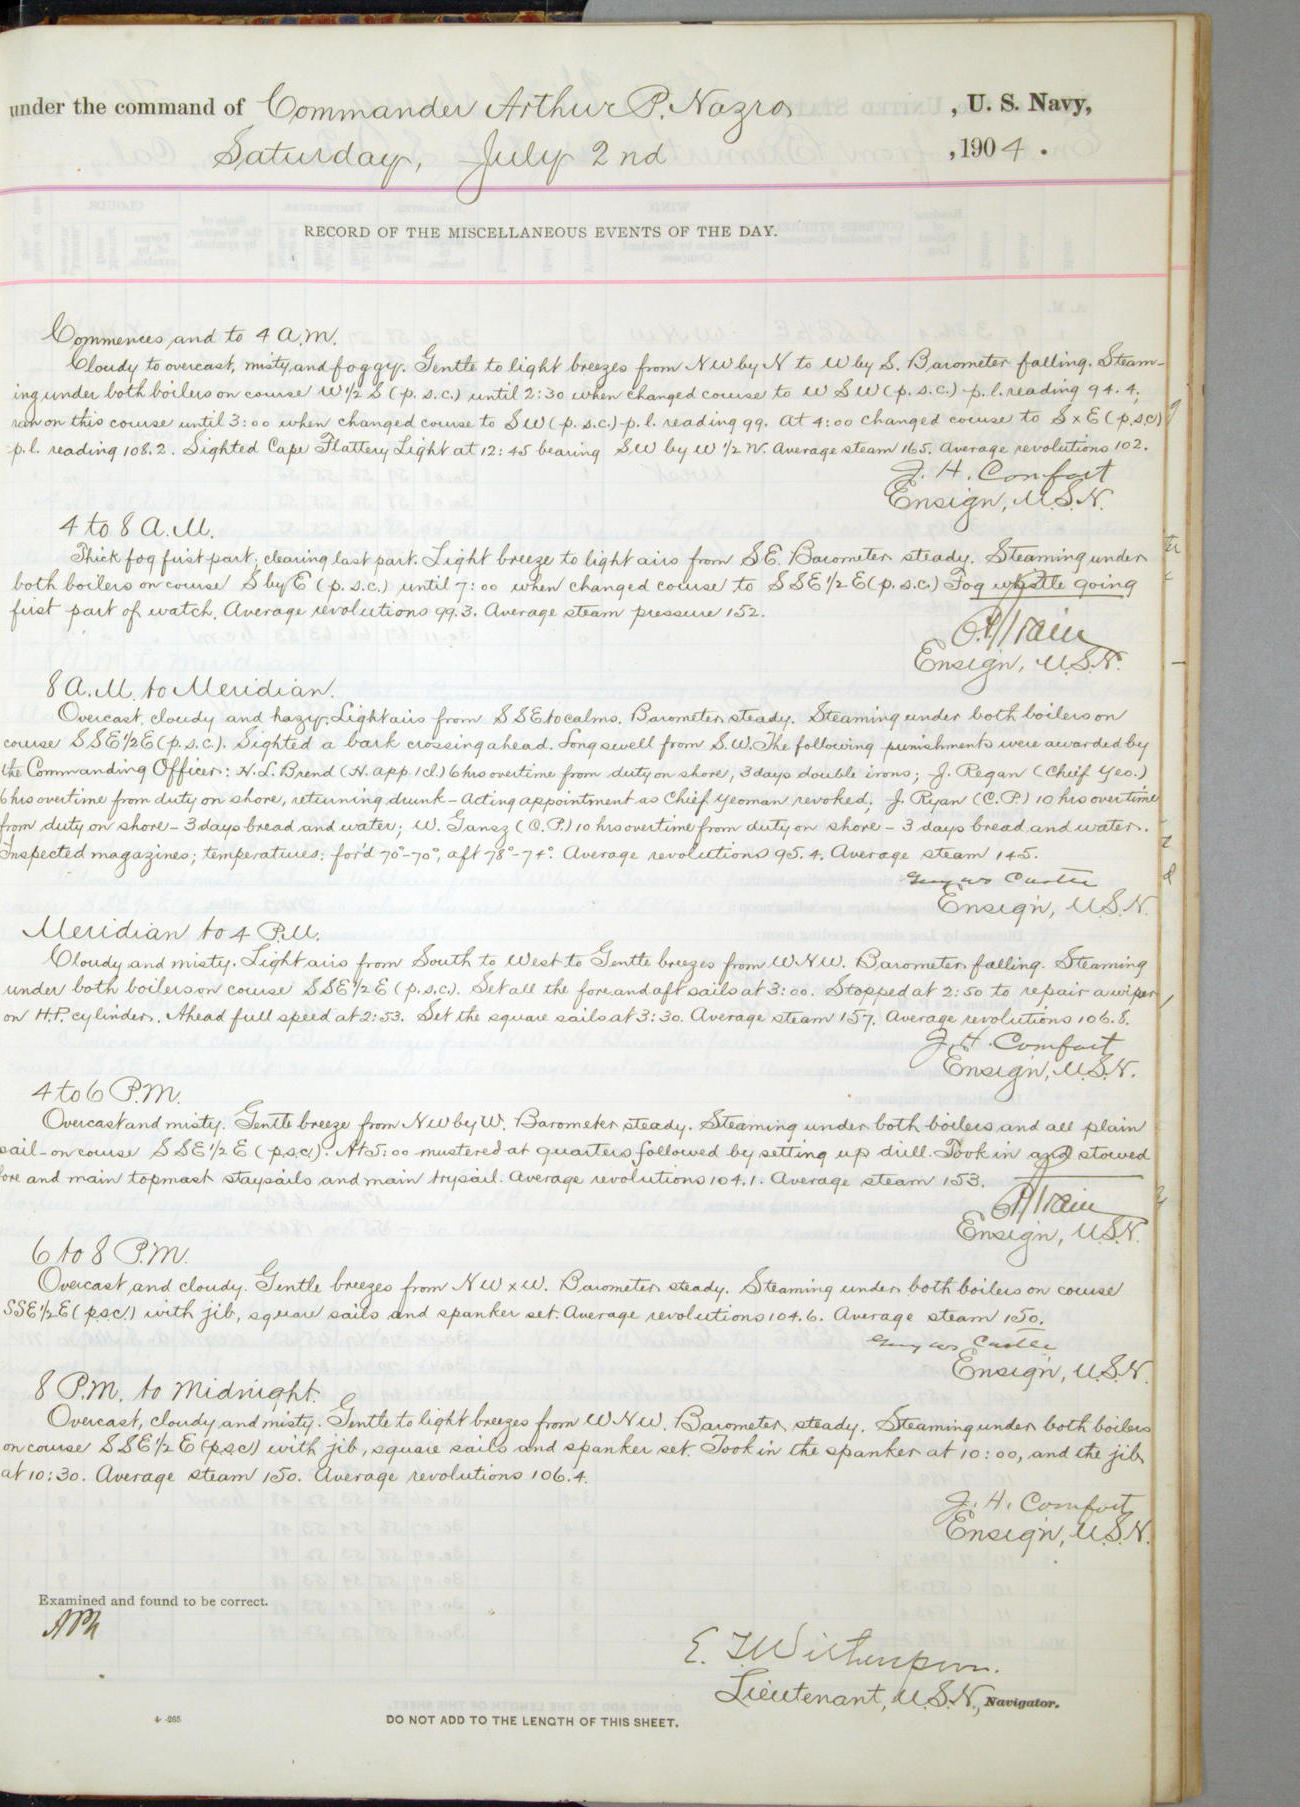 under the command of Commander Arthur P. Nazro, U. S. Navy,
Saturday, July 2nd, 1904.
RECORD OF THE MISCELLANEOUS EVENTS OF THE DAY.
Commences and to 4 A.M.
Cloudy to overcast, misty and foggy. Gentle to light breezes from NW by N to W by S. Barometer falling. Steam-
ing under both boilers on course W 1/2 S (p. s.c.) until 2:30 when changed course to W S W (p. s.c.) - p. l. reading 94.4;
ran on this course until 3:00 when changed course to SW (p. s.c.) - p. l. reading 99. At 4:00 changed course to S x E (p.s.c)
p. l. reading 108.2. Sighted Cape Flattery Light at 12:45 bearing SW by W 1/2 W. Average steam 165. Average revolutions 102.
J. H. Comfort
Ensign, U.S.N.
4 to 8 A.M.
Thick fog first part; clearing last part. Light breeze to light airs from SE. Barometer steady. Steaming under
both boilers on course S by E (p. s.c.) until 7:00 when changed course to SSE 1/2 E (p.s.c.) Fog whistle going
first part of watch. Average revolutions 99.3. Average steam pressure 152.
Ensign, U.S.N.
8 A.M. to Meridian.
Overcast, cloudy and hazy. Light airs from SSE to calms. Barometer steady. Steaming under both boilers on
course SSE 1/2 E (p.s.c.). Sighted a bark crossing ahead. Long swell from S.W. The following punishments were awarded by
the Commanding Officer: H. L. Brend (H. app. 1 cl.) 6 hrs overtime from duty on shore, 3 days double irons; J. Regan (Chief Yeo.)
6 hrs overtime from duty on shore, returning drunk - Acting appointment as Chief Yeoman revoked; J. Ryan (C.P.) 10 hrs overtime
from duty on shore - 3 days bread and water; W. Gansz (C.P.) 10 hrs overtime from duty on shore - 3 days bread and water.
Inspected magazines; temperatures: for'd 70°-70°, aft 78°-74°. Average revolutions 95.4. Average steam 145.
Guy W S Castle
Ensign, U.S.N.
Meridian to 4 P.M.
Cloudy and misty. Light airs from South to West to Gentle breezes from WNW. Barometer falling. Steaming
under both boilers on course SSE 1/2 E (p.s.c.). Set all the fore and aft sails at 3:00. Stopped at 2:50 to repair a wiper
on H.P. cylinder. Ahead full speed at 2:53. Set the square sails at 3:30. Average steam 157. Average revolutions 106.8.
J. H. Comfort
Ensign, U.S.N.
4 to 6 P.M.
Overcast and misty. Gentle breeze from NW by W. Barometer steady. Steaming under both boilers and all plain
sail - on course SSE 1/2 E (p.s.c.). At 5:00 mustered at quarters followed by setting up drill. Took in and stowed
fore and main topmast staysails and main trysail. Average revolutions 104.1. Average steam 153.
Ensign, U.S.N.
6 to 8 P.M.
Overcast and cloudy. Gentle breezes from NW x W. Barometer steady. Steaming under both boilers on course
SSE 1/2 E (p.s.c.) with jib, square sails and spanker set. Average revolutions 104.6. Average steam 150.
Guy W S Castle
Ensign, U.S.N.
8 P.M. to Midnight.
Overcast, cloudy and misty. Gentle to light breezes from WNW. Barometer steady. Steaming under both boilers
on course SSE 1/2 E (p.s.c) with jib, square sails and spanker set. Took in the spanker at 10:00, and the jib
at 10:30. Average steam 150. Average revolutions 106.4.
J. H. Comfort
Ensign, U.S.N.
Examined and found to be correct.
E. T. Witherspoon.
Lieutenant, U.S.N., Navigator.
DO NOT ADD TO THE LENGTH OF THIS SHEET.